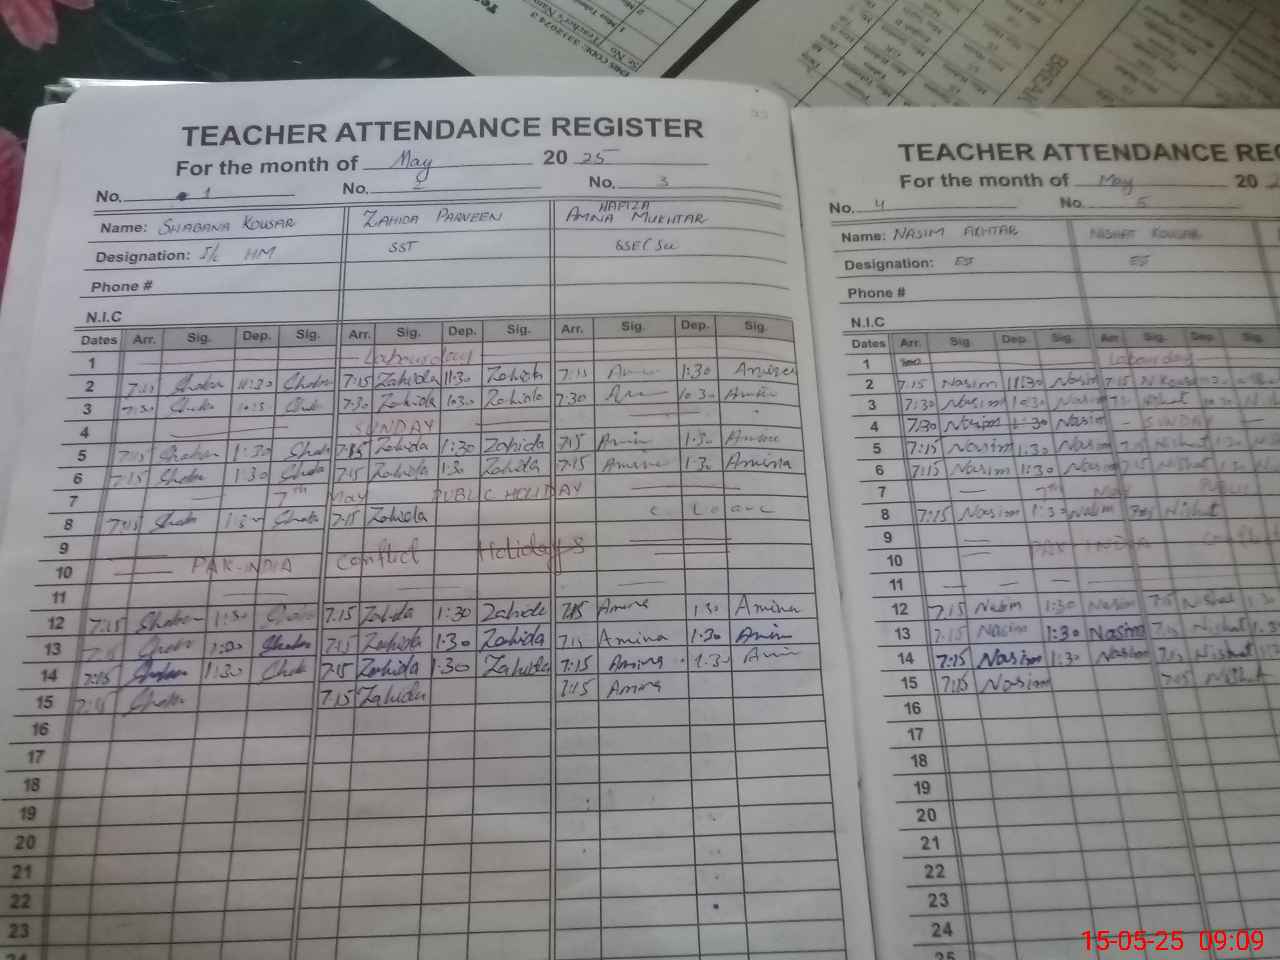 TEACHER ATTENDANCE REGISTER
For the month of May 2025
No. 1 No. 2 No. 3
Name: SHABANA KOUSAR ZAHIDA PARVEEN HAFIZA AMNA MUKHTAR
Designation: I/C HM SST SSE(Sci)
Phone #
N.I.C
Dates Arr. Sig. Dep. Sig. Arr. Sig. Dep. Sig. Arr. Sig. Dep. Sig.
1 Labour day
2 7:15 Shaba 11:30 Shaba 7:15 Zahida 11:30 Zahida 7:15 1:30 Amina
3 7:30 Shaba 10:30 7:30 Zahida 10:30 Zahida 7:30 10:30 Amina
4 SUNDAY
5 7:15 Shaba 1:30 Shaba 7:15 Zahida 1:30 Zahida 7:15 Amina 1:30 Amina
6 7:15 Shaba 1:30 Shaba 7:15 Zahida 1:30 Zahida 7:15 Amina 1:30 Amina
7 7th May PUBLIC HOLIDAY
8 7:15 Shaba 1:30 Shaba 7:15 Zahida C Leave
9
10 PAK-INDIA Conflict Holidays
11
12 7:15 Shaba 1:30 Shaba 7:15 Zahida 1:30 Zahida 7:15 Amina 1:30 Amina
13 7:15 Shaba 1:30 Shaba 7:15 Zahida 1:30 Zahida 7:15 Amina 1:30 Amina
14 7:15 Shaba 1:30 Shaba 7:15 Zahida 1:30 Zahida 7:15 Amina 1:30
15 7:15 Shaba 7:15 Zahida 7:15 Amina
16
17
18
19
20
21
22
23
24
TEACHER ATTENDANCE REG
For the month of May 20
No. 4 No. 5
Name: NASIM AKHTAR NISHAT KOUSAR
Designation: ESE ESE
Phone #
N.I.C
Dates Arr. Sig Dep. Sig. Arr Sig. Dep Sig.
1 Labour day
2 7:15 Nasim 11:30 Nasim 7:15 N Kousar
3 7:30 Nasim 10:30 Nasim Nishat
4 7:30 Nasim 1:30 Nasim SUNDAY
5 7:15 Nasim 1:30 Nasim 7:15 Nishat
6 7:15 Nasim 1:30 Nasim 7:15 Nishat 1:30
7 7th May PUBLIC
8 7:15 Nasim 1:30 Nasim 7:15 Nishat
9
10 PAK INDIA Conflict
11
12 7:15 Nasim 1:30 Nasim 7:15 Nishat 1:30
13 7:15 Nasim 1:30 Nasim 7:15 Nishat 1:30
14 7:15 Nasim 1:30 Nasim 7:15 Nishat
15 7:15 Nasim 7:15 Nishat
16
17
18
19
20
21
22
23
24
25
15-05-25 09:09